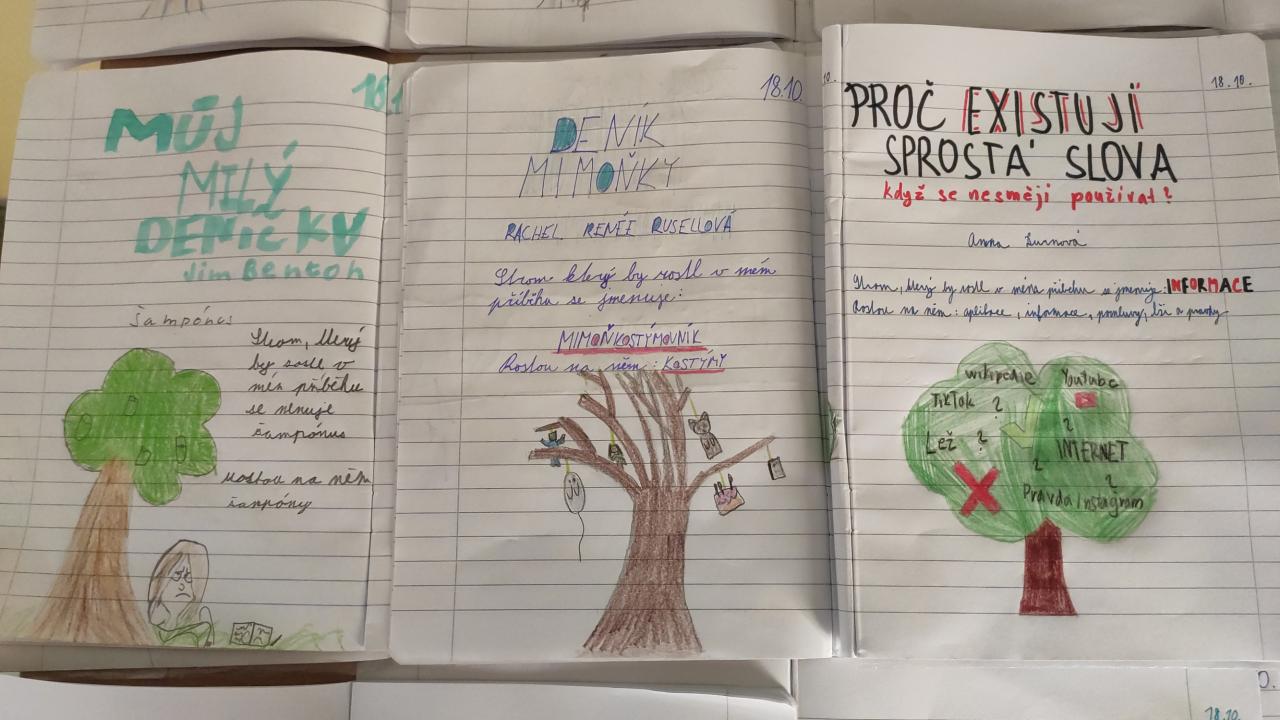 18.1
MŮJ
MILÝ
DENÍČKU
Jim Benton
šampónus
Strom, který
by rostl v
mém příběhu
se nenuje
šampónus
rostou na něm
šampóny
18.10.
DENIK
MIMOŇKY
RACHEL RENÉE RUSELLOVÁ
Strom který by rostl v mém
příběhu se jmenuje:
MIMOŇKOSTÝMOVNÍK
Rostou na něm: KOSTÝMY
18.10.
PROČ EXISTUJÍ
SPROSTÁ SLOVA
když se nesmějí používat?
Anna
Strom, který by rostl v mém příběhu se jmenuje: INFORMACE
Rostou na něm: aplikace, informace, pomluvy, lži a pravdy
wikipedie Youtube
TikTok ?
?
Lež ? INTERNET
?
?
Pravda Instagram
18.10.